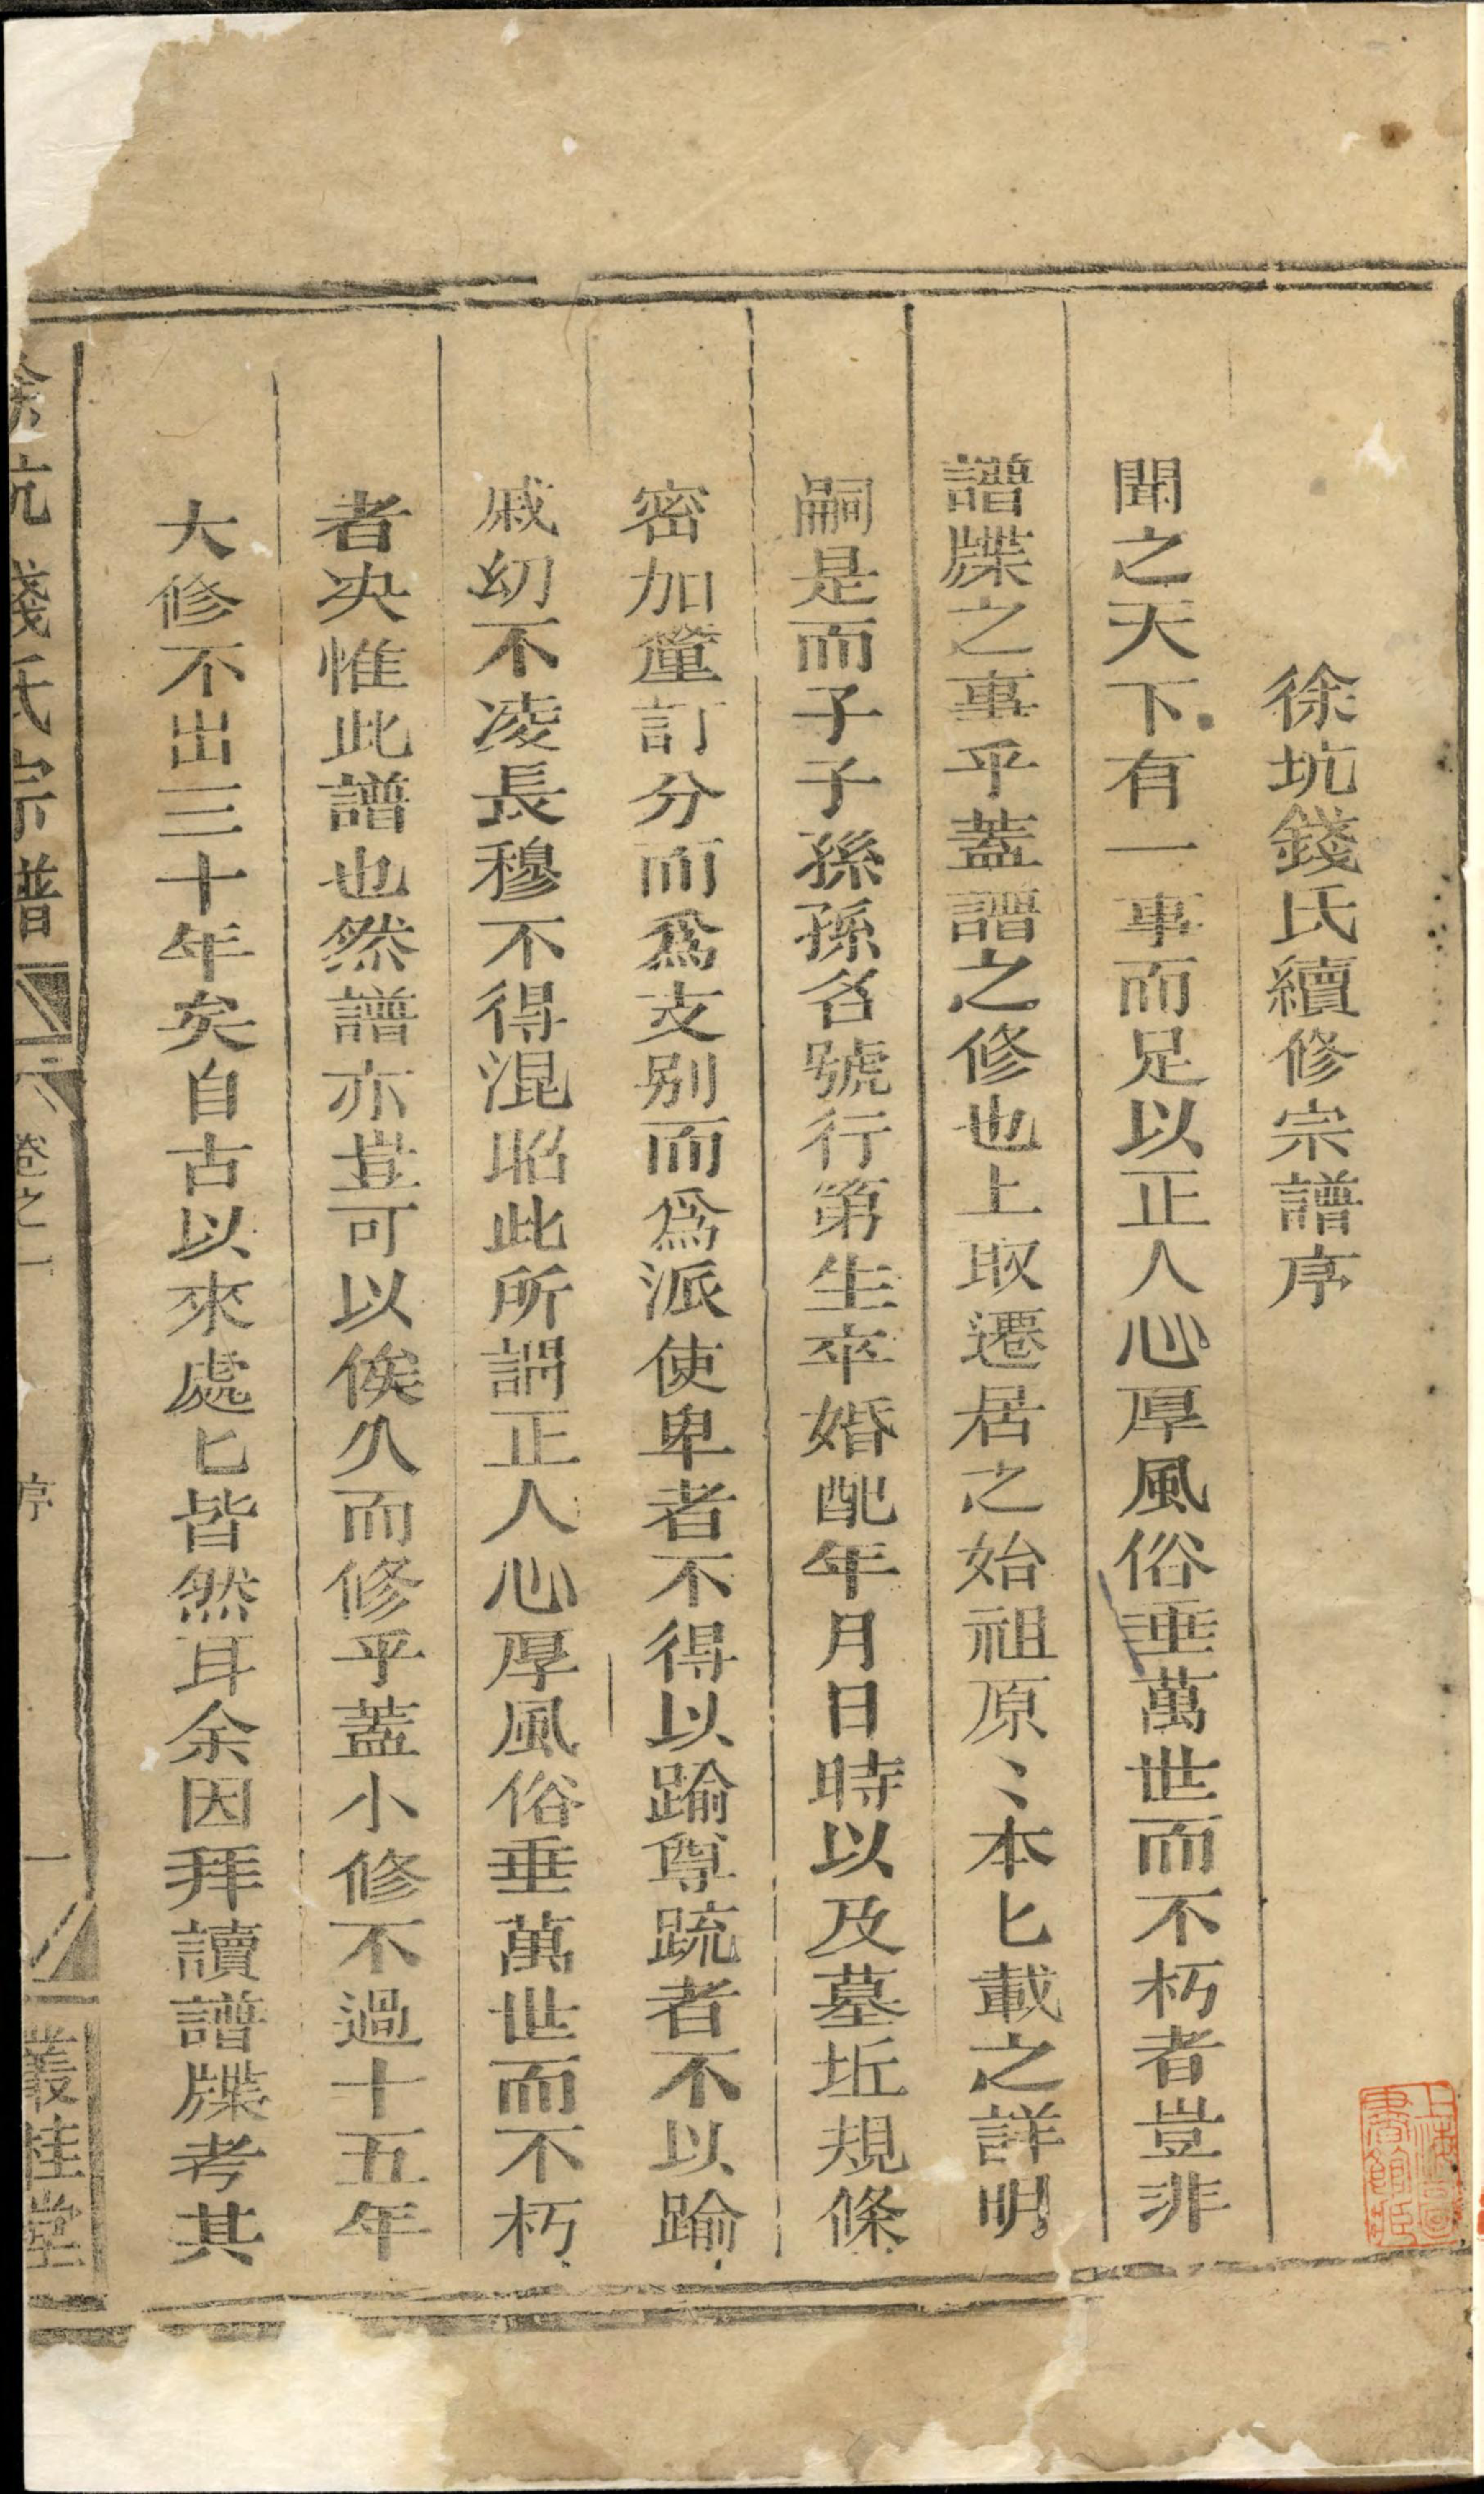 徐坑錢氏續修宗譜序
聞之天下有一事而足以正人心厚風俗垂萬世而不朽者豈非
譜牒之事乎蓋譜之修也上取遷居之始祖原〻本匕載之詳明
嗣是而子子孫孫名號行第生卒婚配年月日時以及墓坵規條
密加釐訂分而爲支别而爲派使卑者不得以踰尊䟽者不以踰
戚㓜不凌長穆不得混昭此所謂正人心厚風俗垂萬世而不朽
者决惟此譜也然譜亦豈可以俟久而修乎蓋小修不過十五年
大修不出三十年矣自古以來處匕皆然耳余因拜讀譜牒考其
徐坑錢氏宗譜
卷之一
序
一
叢桂堂